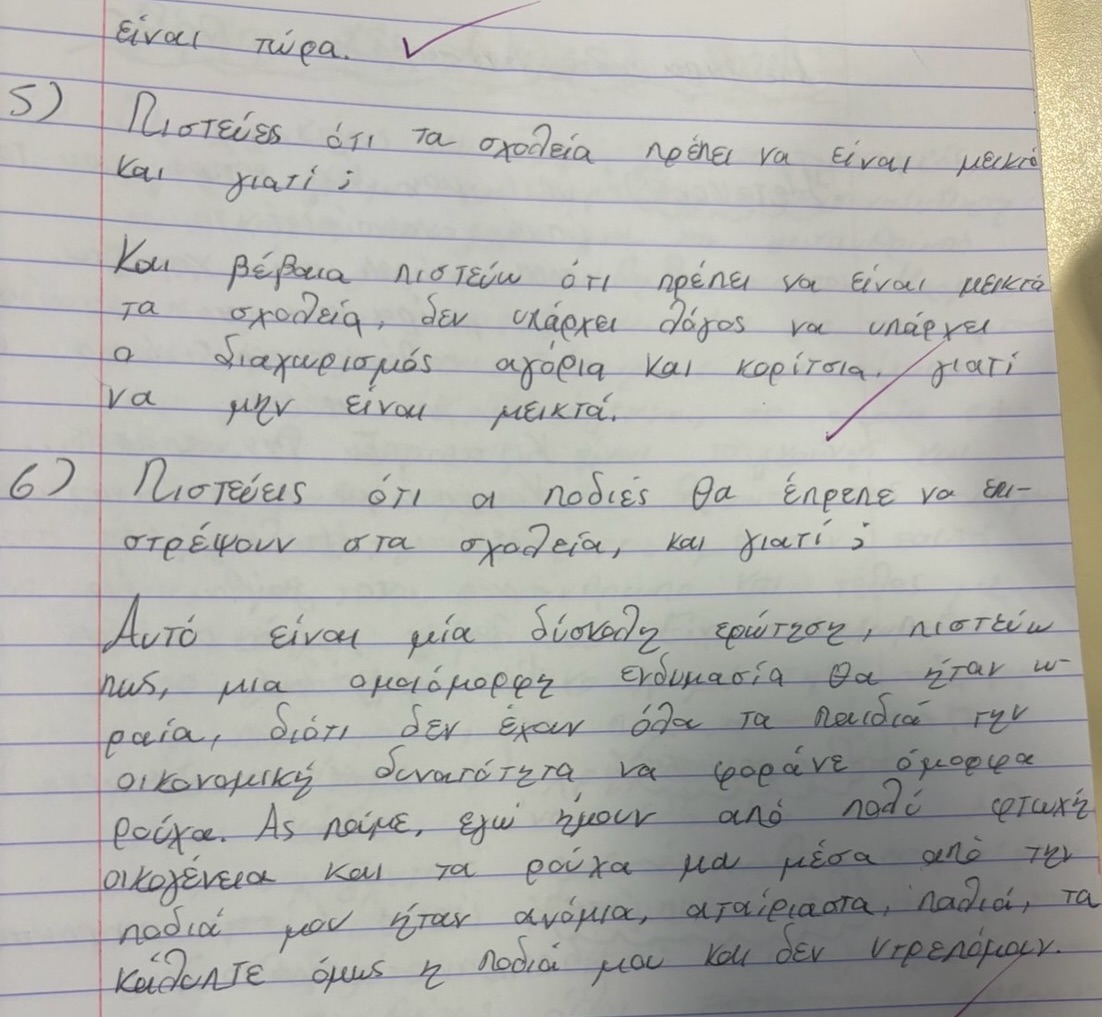 είναι τώρα.
5) Πιστεύες ότι τα σχολεία πρέπει να είναι μεικτά
και γιατί;
Και βέβαια πιστεύω ότι πρέπει να είναι μεικτά
τα σχολεία, δεν υπάρχει λόγος να υπάρχει
ο διαχωρισμός αγόρια και κορίτσια. γιατί
να μην είναι μεικτά.
6) Πιστεύεις ότι οι ποδιές θα έπρεπε να επι-
στρέψουν στα σχολεία, και γιατί;
Αυτό είναι μία δύσκολη ερώτηση, πιστεύω
πως, μια ομοιόμορφη ενδυμασία θα ήταν ω-
ραία, διότι δεν έχουν όλα τα παιδιά την
οικονομική δυνατότητα να φοράνε όμορφα
ρούχα. Ας πούμε, εγώ ήμουν από πολύ φτωχή
οικογένεια και τα ρούχα μου μέσα από την
ποδιά μου ήταν ανόμια, αταίριαστα, παλιά, τα
κάλυπτε όμως η ποδιά μου και δεν ντρεπόμουν.